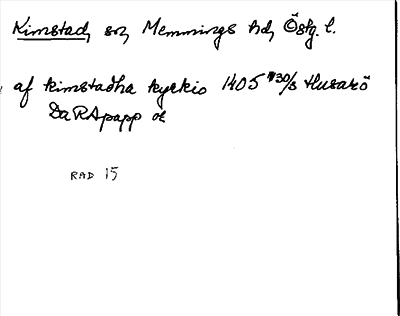 Kimstad, sn, Memmings hd, Östg. l.
af kimstadha kyrkio 1405 30/3 Husarö
DaRApapp or
RAD 15